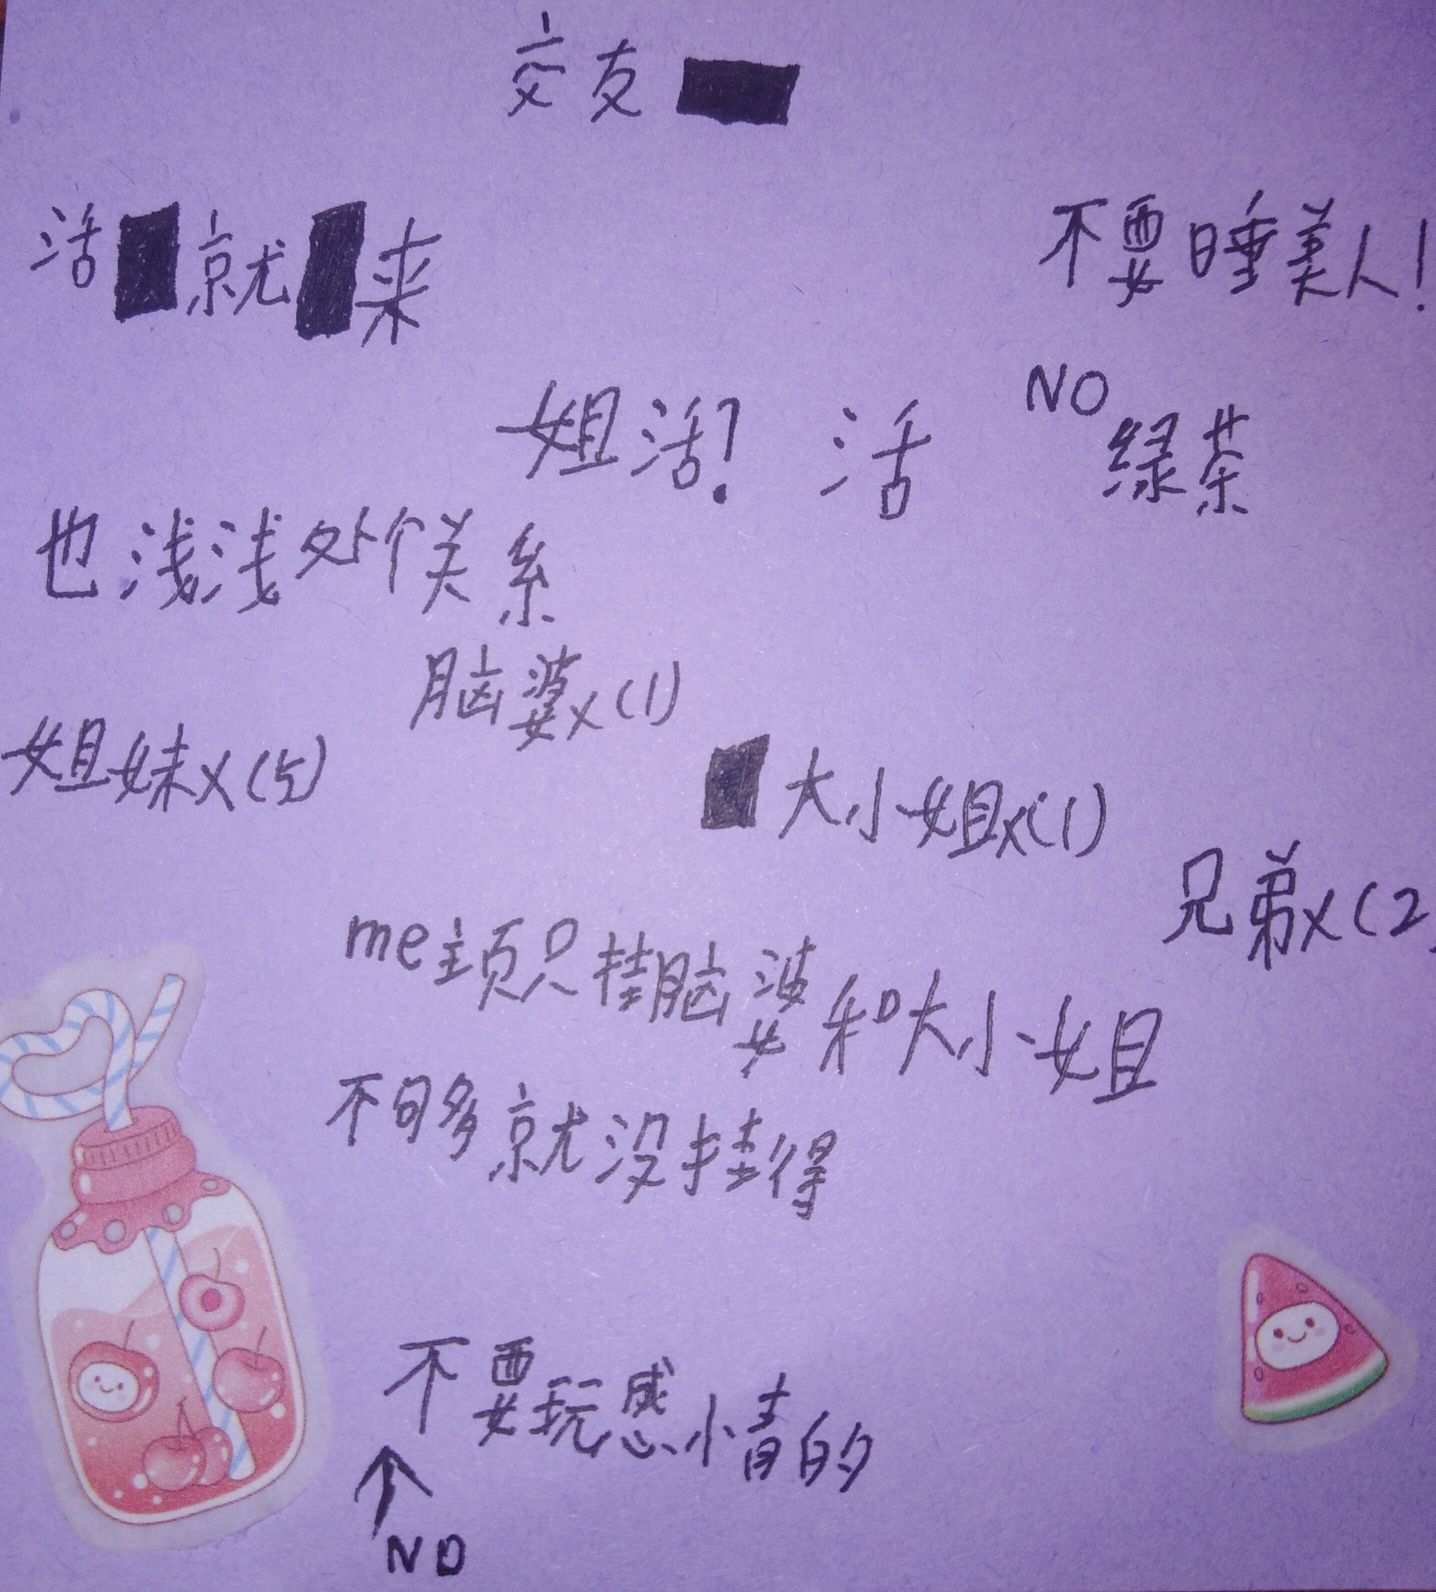 交友
活 就 来
不要睡美人!
姐活? 活
NO
绿茶
也浅浅处个关系
脑婆x(1)
姐妹x(5)
大小姐x(1)
兄弟x(2)
me主页只挂脑婆和大小姐
不够多就没挂得
不要玩感情的
↑
NO